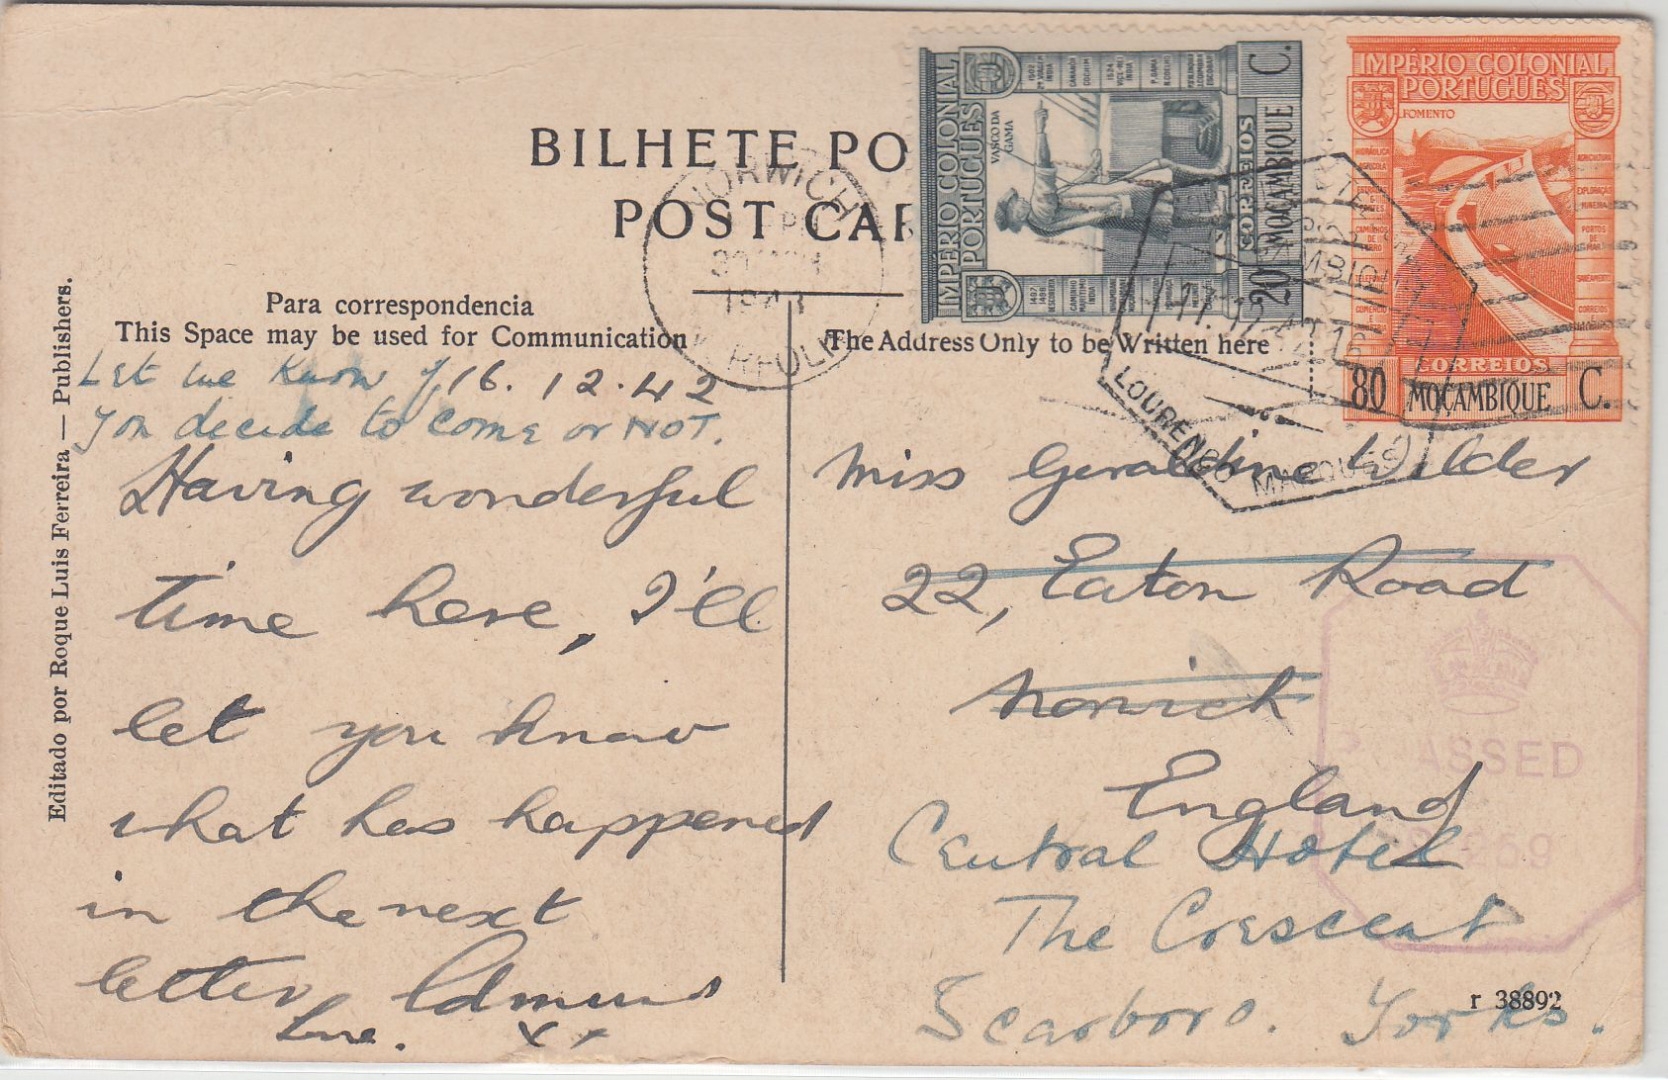 BILHETE PO
POST CAR
Para correspondencia
This Space may be used for Communication
The Address Only to be Written here
Editado por Roque Luis Ferreira — Publishers.
Let me know if
16.12.42
you decide to come or NOT.
Having wonderful
time here, I'll
let you know
what has happened
in the next
letter, Edmund
Love. xx
Miss Geraldine Wilder
22, Eaton Road
Norwich
England
Central Hotel
The Crescent
Scarboro. Yorks.
r 38892
IMPÉRIO COLONIAL
PORTUGUÊS
VASCO DA
GAMA
CORREIOS
20 MOÇAMBIQUE C.
IMPÉRIO COLONIAL
PORTUGUÊS
FOMENTO
CORREIOS
80 MOÇAMBIQUE C.
NORWICH
1943
NORFOLK
LOURENÇO MARQUES
PASSED